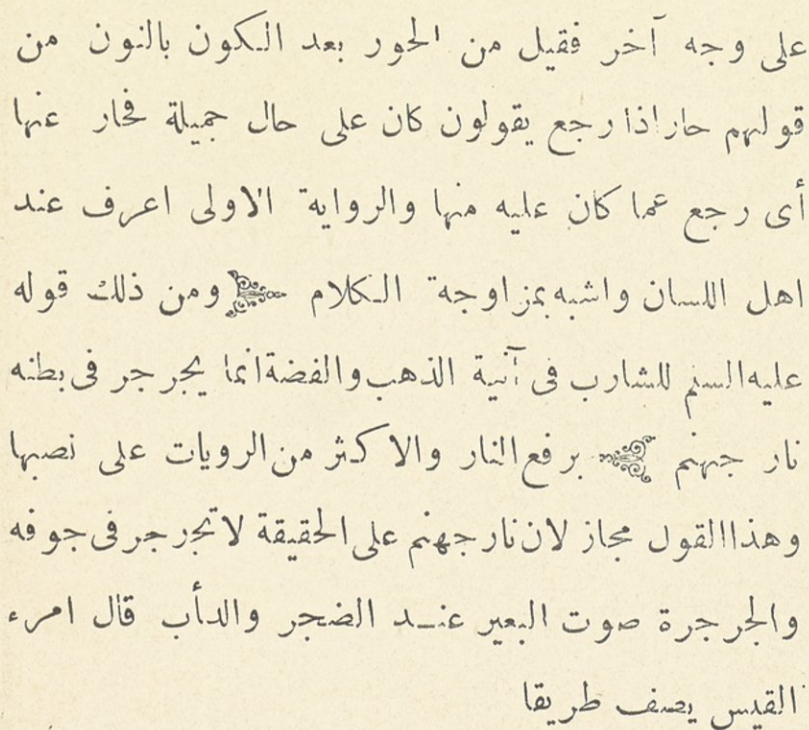 على وجه آخر فقيل من الحور بعد الكون بالنون من
قولهم حار اذا رجع يقولون كان على حال جميلة فحار عنها
أى رجع عما كان عليه منها والرواية الاولى اعرف عند
اهل اللسان واشبه بمزاوجة الكلام ومن ذلك قوله
عليه السلم للشارب فى آنية الذهب والفضة انما يجرجر فى بطنه
نار جهنم برفع النار والاكثر من الرويات على نصبها
وهذا القول مجاز لان نار جهنم على الحقيقة لا تجرجر فى جوفه
والجرجرة صوت البعير عنـد الضجر والدأب قال امرء
القيس يصف طريقا